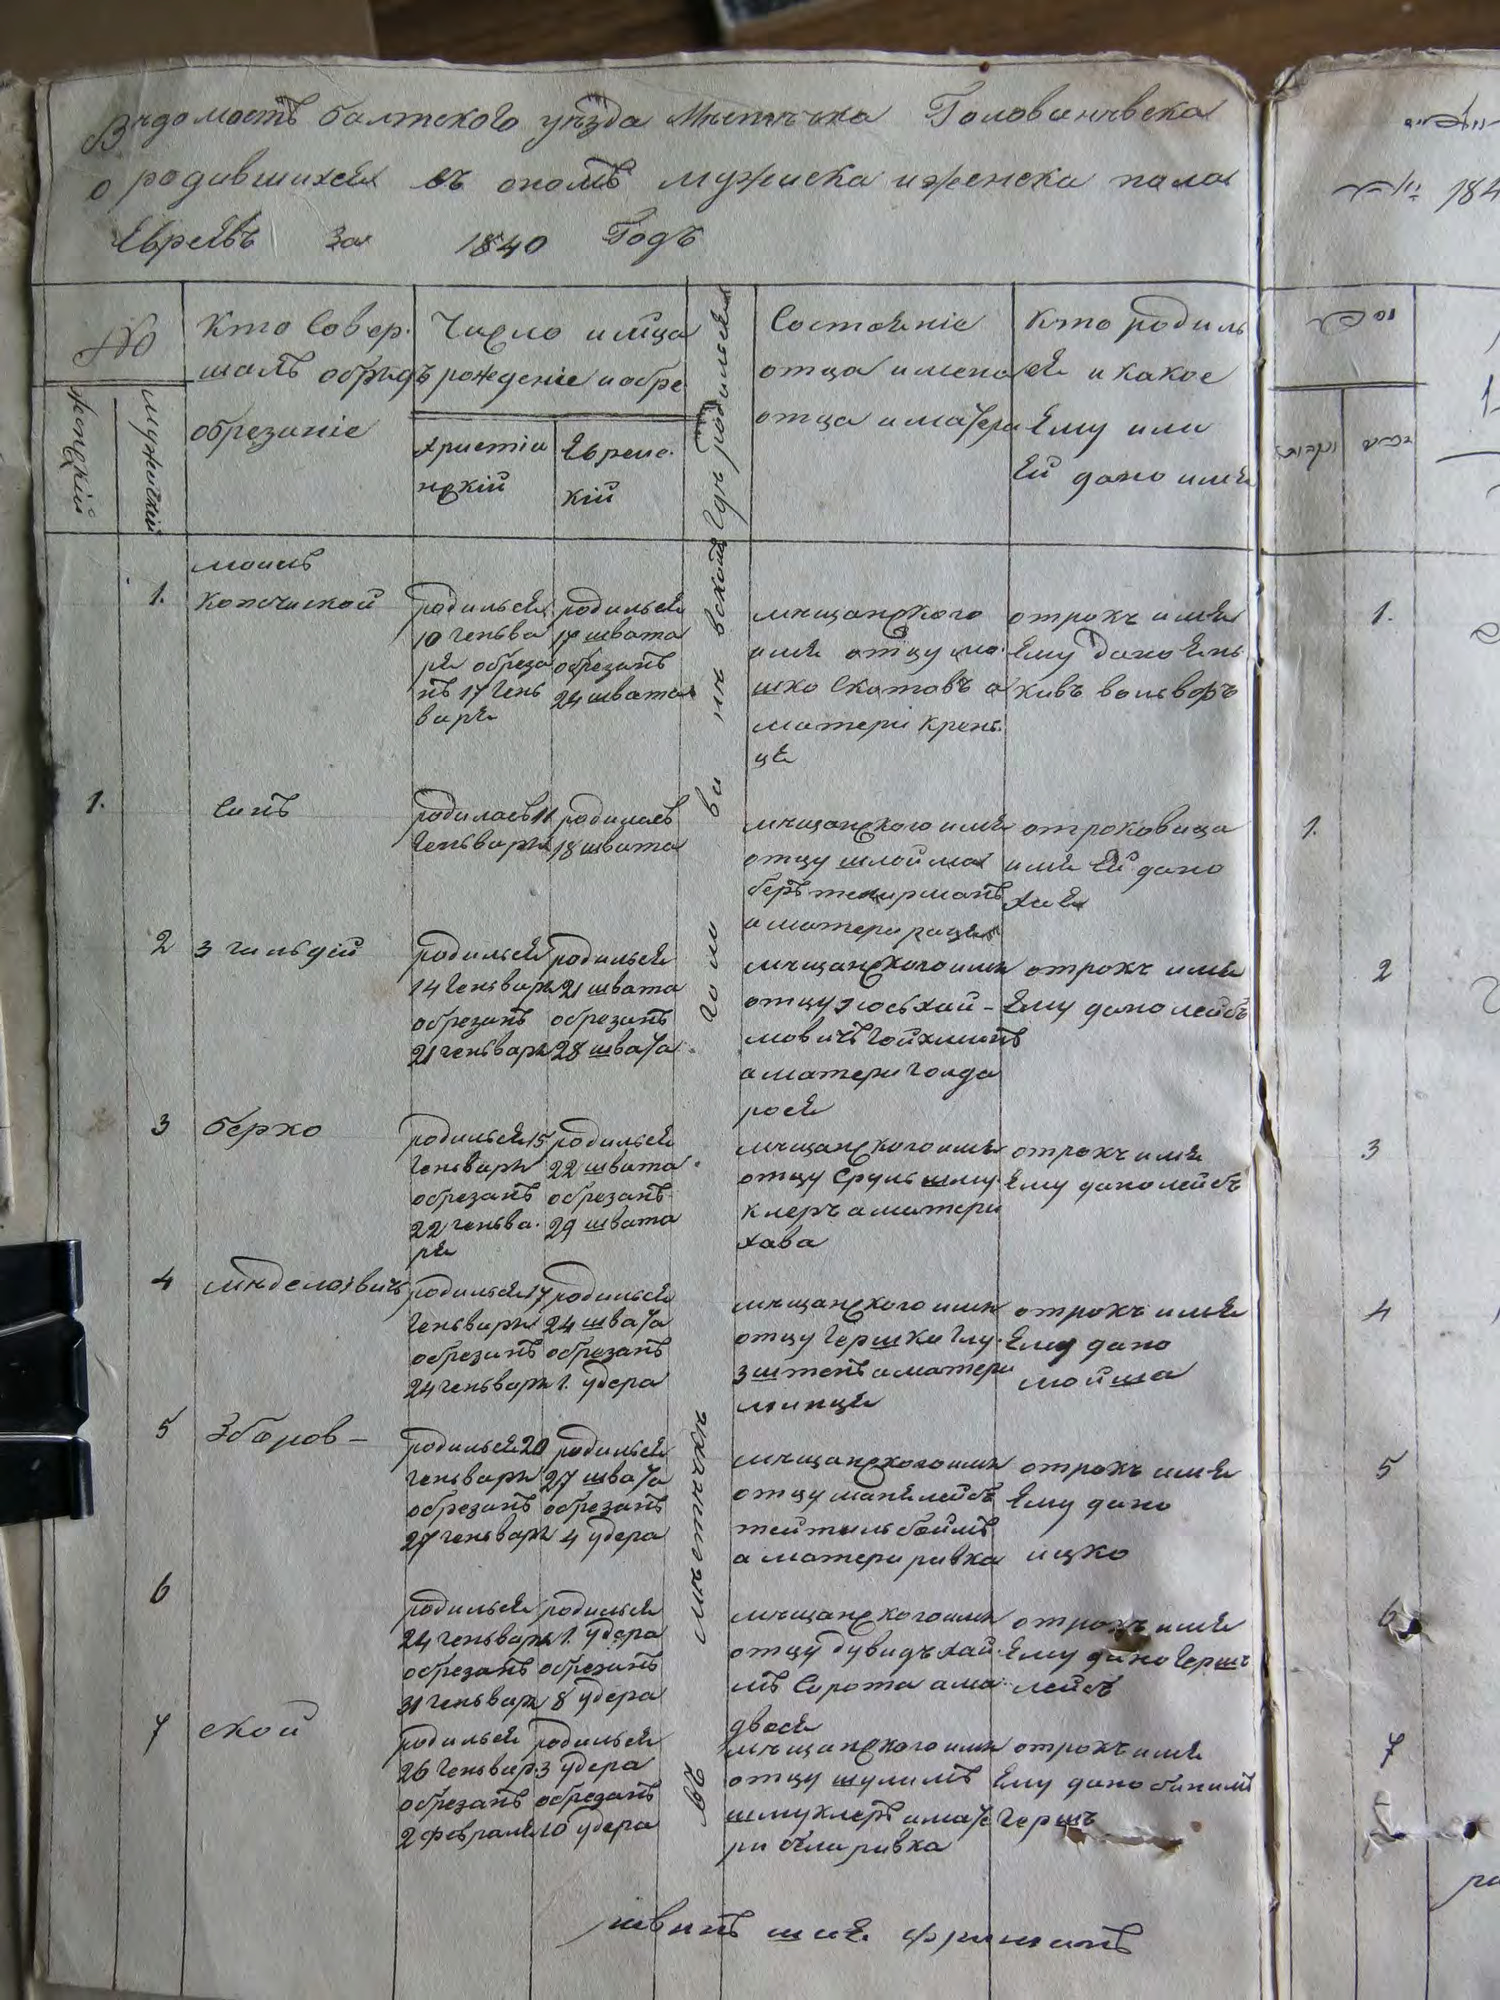 Вѣдомость балтского уѣзда Мѣстечька Голованевска
о родившихся въ ономъ мужиска иженска пола
Евреевъ За 1840 Годъ
№
женскій
мужискій
Кто Совер.
шалъ обрядъ
обрезаніе
Число имѣца
рожденіе иобре
христіа
нскій
Еврейс.
кій
Гдѣ родилься
Состояніе
отца имена
отца иматери
Кто родиль
ся и какое
Ему или
Ей дано имя
1.
моисъ
копочиской
родилься
10 Геньва
ря обреза
нъ 17 Гень
варя
родилься
17 швата
обрезанъ
24 швата
мещанского
имя отцу мо.
шко Скатовъ а
матери Крень.
ця
отрокъ имя
Ему дано Янь
кивъ вольворъ
1.
Синъ
родилась 11
Геньваря
родилась
18 швата
мещанского имя
отцу шлойма
беръ
а матери
отроковица
имя Ей дано
Хая
2
3 гильдій
родилься
14 Геньваря
обрезанъ
21 геньваря
родилься
21 швата
обрезанъ
28 швата
мещанского имя
отцу іось хай-
мовичъ Гойхманъ
а матери Голда
рося
отрокъ имя
Ему дано лейбъ
3
берко
родилься 15
Геньваря
обрезанъ
22 геньва.
ря
родилься
22 швата
обрезанъ
29 швата
мещанского имя
отцу Сруль шму.
клеръ а матери
хава
отрокъ имя
Ему дано лейбъ
4
родилься 17
Геньваря
обрезанъ
24 геньваря
родилься
24 швата
обрезанъ
1. удера
мещанского имя
отцу Гершки Глу.
зштенъ а матери
минця
отрокъ имя
Ему дано
мойша
5
Зборов-
родилься 20
геньваря
обрезанъ
27 геньваря
родилься
27 швата
обрезанъ
4 удера
мещанского имя
отцу лейбъ
тейтильбоймъ
а матери ривка
отрокъ имя
Ему дано
ицко
6
родилься
24 геньваря
обрезанъ
31 геньваря
родилься
1. удера
обрезанъ
8 удера
мещанского имя
отцу дувидъ хаи.
мъ Сирота а ма.
двося
отрокъ имя
Ему дано Гершъ
лейбъ
7
ской
родилься
26 Генвар.
обрезанъ
2 февраля
родилься
3 удера
обрезанъ
10 удера
мещанского имя
отцу шулимъ
шмуклеръ имате
ри бѣла ривка
отрокъ имя
Ему дано
Гершъ
въ местечкѣ
184
1.
1.
2
3
4
5
6
7